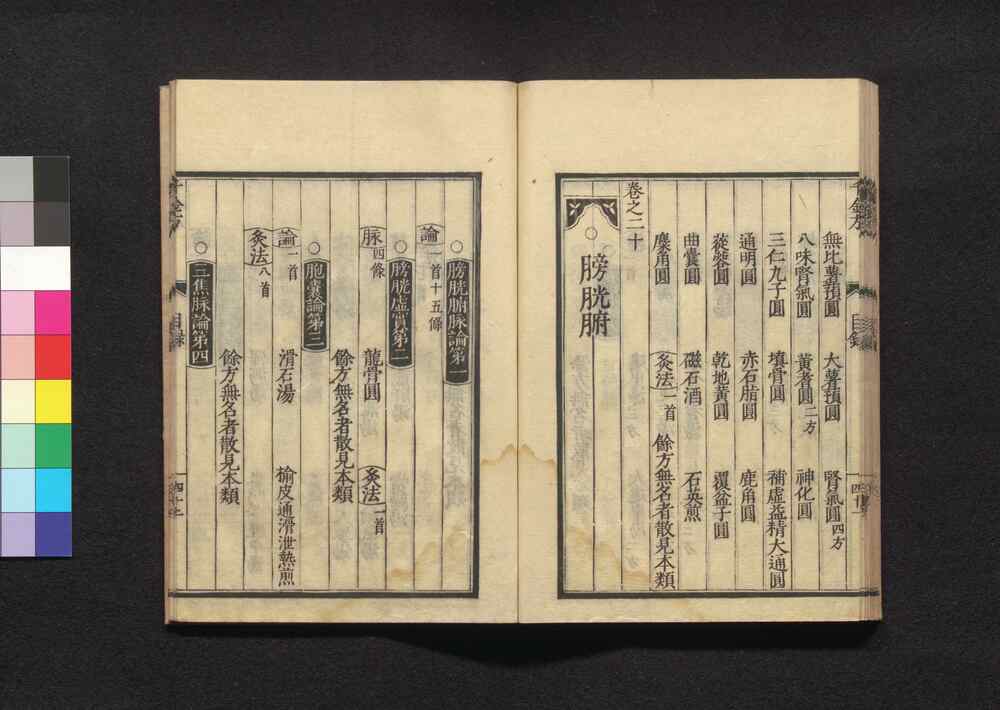 無比薯蕷圓 大薯蕷圓 腎氣圓四方
八味腎氣圓 黃耆圓二方 神化圓
三仁九子圓 填骨圓 補虛益精大通圓
通明圓 赤石脂圓 鹿角圓
蓯蓉圓 乾地黃圓 覆盆子圓
曲囊圓 磁石酒 石英煎
麋角圓 灸法一首 餘方無名者散見本類
卷之二十
○膀胱腑
○膀胱腑脉論第一
論一首十五條
○膀胱虛實第二
脉四條 龍骨圓 灸法一首
餘方無名者散見本類
○胞囊論第三
論一首 滑石湯 榆皮通滑泄熱煎
灸法八首
餘方無名者散見本類
○三焦脉論第四
目錄